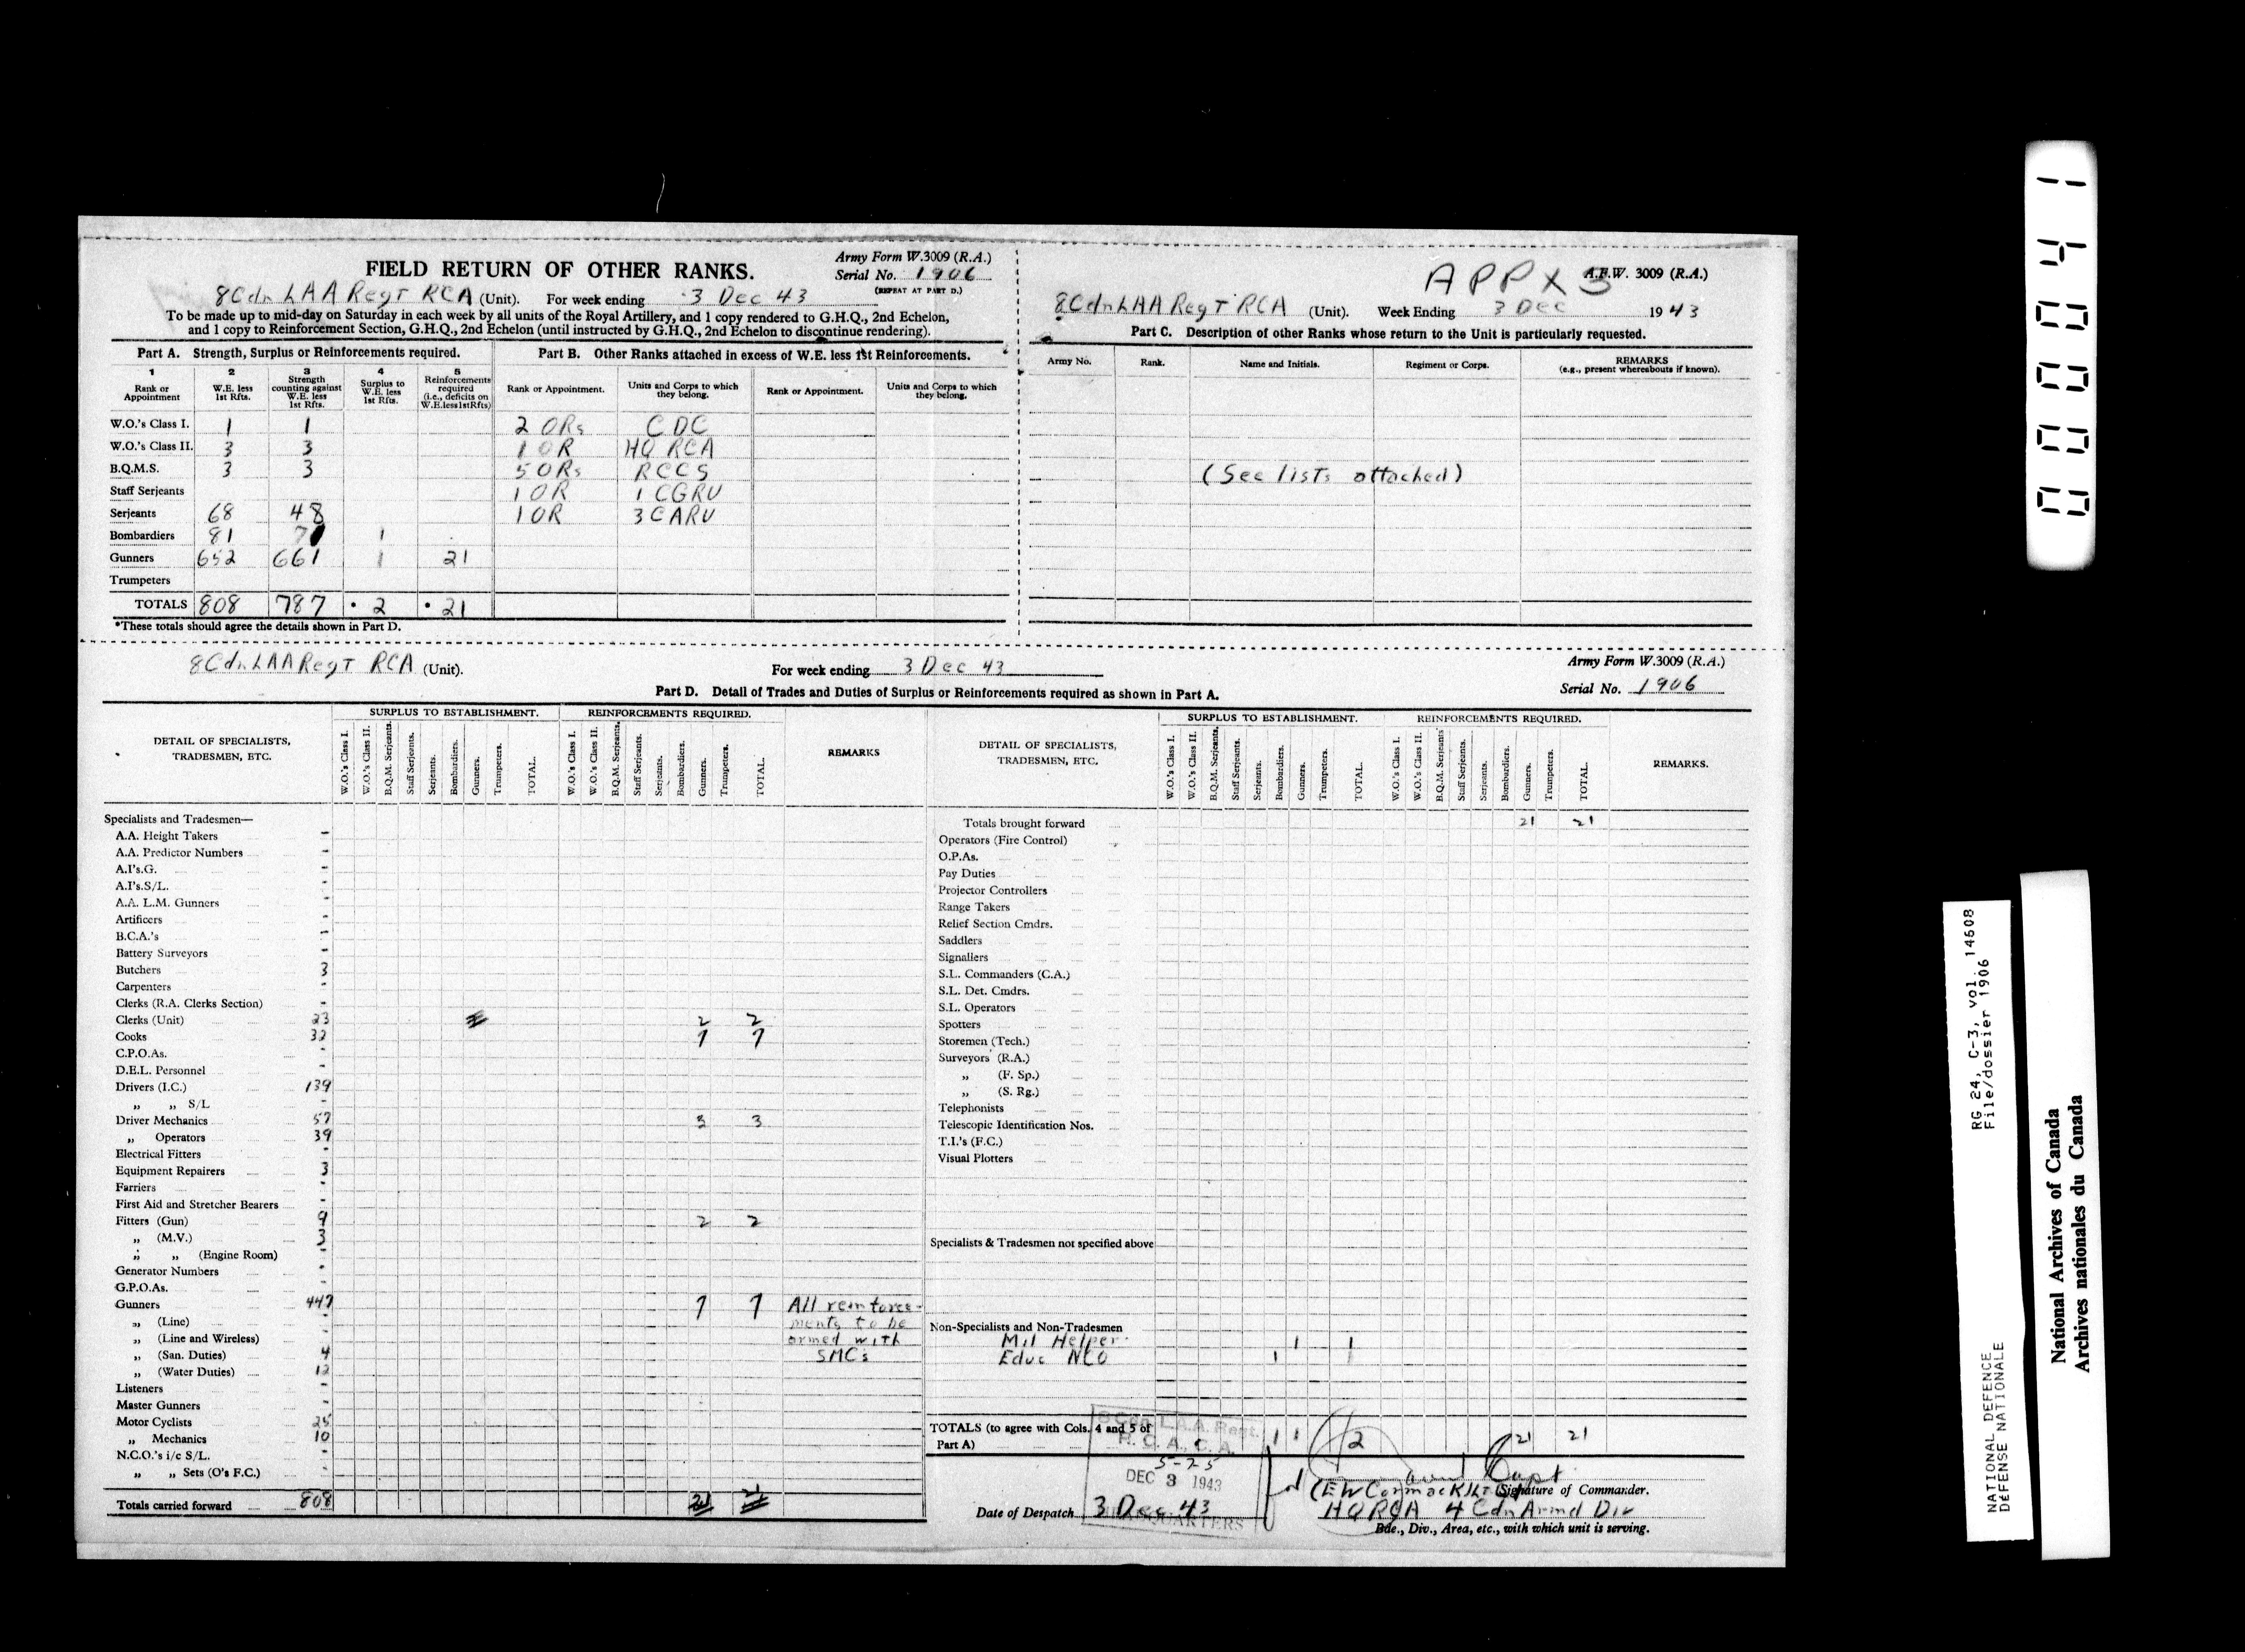 FIELD RETURN OF OTHER RANKS.
Army Form W.3009 (R.A.)
Serial No. 1906
(REPEAT AT PART D.)
8 Cdn LAA Regt RCA (Unit). For week ending 3 Dec 43
To be made up to mid-day on Saturday in each week by all units of the Royal Artillery, and 1 copy rendered to G.H.Q., 2nd Echelon,
and 1 copy to Reinforcement Section, G.H.Q., 2nd Echelon (until instructed by G.H.Q., 2nd Echelon to discontinue rendering).
Part A. Strength, Surplus or Reinforcements required.
1 Rank or Appointment
2 W.E. less 1st Rfts.
3 Strength counting against W.E. less 1st Rfts.
4 Surplus to W.E. less 1st Rfts.
5 Reinforcements required (i.e., deficits on W.E.less1stRfts)
W.O.'s Class I. 1 1
W.O.'s Class II. 3 3
B.Q.M.S. 3 3
Staff Serjeants
Serjeants 68 48
Bombardiers 81 1
Gunners 652 661 1 21
Trumpeters
TOTALS 808 787 • 2 • 21
*These totals should agree the details shown in Part D.
Part B. Other Ranks attached in excess of W.E. less 1st Reinforcements.
Rank or Appointment. Units and Corps to which they belong. Rank or Appointment. Units and Corps to which they belong.
2 ORs CDC
1 OR HQ RCA
5 ORs RCCS
1 OR 1 CGRU
1 OR 3 CARU
APPX 3
A.F.W. 3009 (R.A.)
8 Cdn LAA Regt RCA (Unit). Week Ending 3 Dec 1943
Part C. Description of other Ranks whose return to the Unit is particularly requested.
Army No. Rank. Name and Initials. Regiment or Corps. REMARKS (e.g., present whereabouts if known).
(See lists attached)
8 Cdn LAA Regt RCA (Unit).
For week ending 3 Dec 43
Army Form W.3009 (R.A.)
Serial No. 1906
Part D. Detail of Trades and Duties of Surplus or Reinforcements required as shown in Part A.
DETAIL OF SPECIALISTS, TRADESMEN, ETC.
SURPLUS TO ESTABLISHMENT.
W.O.'s Class I. W.O.'s Class II. B.Q.M. Serjeants. Staff Serjeants. Serjeants. Bombardiers. Gunners. Trumpeters. TOTAL.
REINFORCEMENTS REQUIRED.
W.O.'s Class I. W.O.'s Class II. B.Q.M. Serjeants. Staff Serjeants. Serjeants. Bombardiers. Gunners. Trumpeters. TOTAL.
REMARKS
Specialists and Tradesmen—
A.A. Height Takers -
A.A. Predictor Numbers -
A.I's.G. -
A.I's.S/L. -
A.A. L.M. Gunners -
Artificers -
B.C.A.'s -
Battery Surveyors -
Butchers 3
Carpenters -
Clerks (R.A. Clerks Section) -
Clerks (Unit) 23 2 2
Cooks 32 7 7
C.P.O.As. -
D.E.L. Personnel -
Drivers (I.C.) 139
„ „ S/L -
Driver Mechanics 57 3 3
„ Operators 39
Electrical Fitters -
Equipment Repairers 3
Farriers -
First Aid and Stretcher Bearers -
Fitters (Gun) 9 2 2
„ (M.V.) 3
„ „ (Engine Room) -
Generator Numbers -
G.P.O.As. -
Gunners 447 7 7 All reinforce-
„ (Line) - ments to be
„ (Line and Wireless) - armed with
„ (San. Duties) 4 SMCs
„ (Water Duties) 12
Listeners -
Master Gunners -
Motor Cyclists 25
„ Mechanics 10
N.C.O.'s i/c S/L. -
„ „ Sets (O's F.C.) -
Totals carried forward 808 21 21
DETAIL OF SPECIALISTS, TRADESMEN, ETC.
SURPLUS TO ESTABLISHMENT.
W.O.'s Class I. W.O.'s Class II. B.Q.M. Serjeants. Staff Serjeants. Serjeants. Bombardiers. Gunners. Trumpeters. TOTAL.
REINFORCEMENTS REQUIRED.
W.O.'s Class I. W.O.'s Class II. B.Q.M. Serjeants Staff Serjeants. Serjeants. Bombardiers. Gunners. Trumpeters. TOTAL.
REMARKS.
Totals brought forward 21 21
Operators (Fire Control)
O.P.As.
Pay Duties
Projector Controllers
Range Takers
Relief Section Cmdrs.
Saddlers
Signallers
S.L. Commanders (C.A.)
S.L. Det. Cmdrs.
S.L. Operators
Spotters
Storemen (Tech.)
Surveyors (R.A.)
„ (F. Sp.)
„ (S. Rg.)
Telephonists
Telescopic Identification Nos.
T.I.'s (F.C.)
Visual Plotters
Specialists & Tradesmen not specified above
Non-Specialists and Non-Tradesmen
Mil Helper 1 1
Educ NCO 1 1
TOTALS (to agree with Cols. 4 and 5 of Part A) 1 1 2 21 21
8 Cdn. L.A.A. Regt.
R. C. A., C. A.
5-25
DEC 3 1943
HEADQUARTERS
Date of Despatch 3 Dec 43
Capt
(EW Cormack) Lt Signature of Commander.
HQ RCA 4 Cdn Armd Div
Bde., Div., Area, etc., with which unit is serving.
000041
RG 24, C-3, vol. 14608
File/dossier 1906
NATIONAL DEFENCE
DEFENSE NATIONALE
National Archives of Canada
Archives nationales du Canada